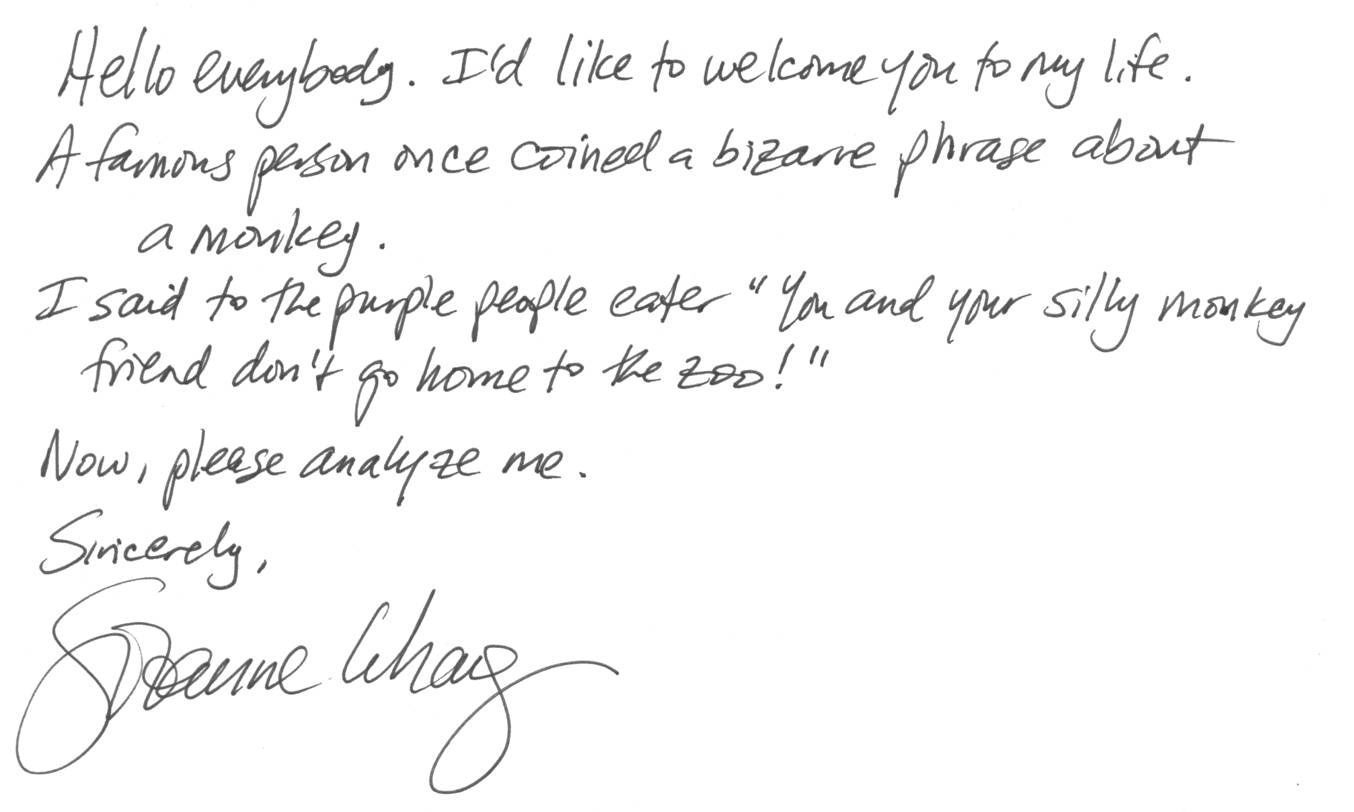 Hello everybody. I'd like to welcome you to my life.
A famous person once coined a bizarre phrase about
a monkey.
I said to the purple people eater "You and your silly monkey
friend don't go home to the zoo!"
Now, please analyze me.
Sincerely,
Suzanne Whang